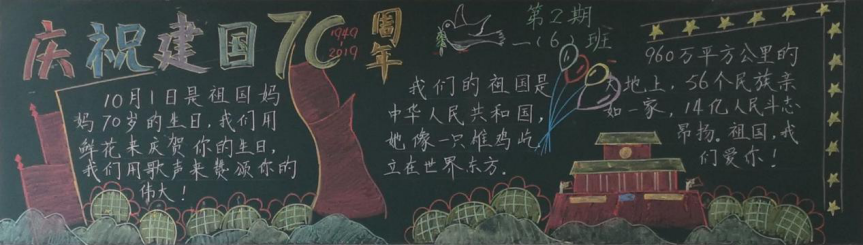 庆祝建国70周年
1949
2019
第2期
一(6)班
10月1日是祖国妈
妈70岁的生日,我们用
鲜花来庆贺你的生日,
我们用歌声来赞颂你的
伟大!
我们的祖国是
中华人民共和国,
她像一只雄鸡屹
立在世界东方.
960万平方公里的
大地上,56个民族亲
如一家,14亿人民斗志
昂扬.祖国,我
们爱你!